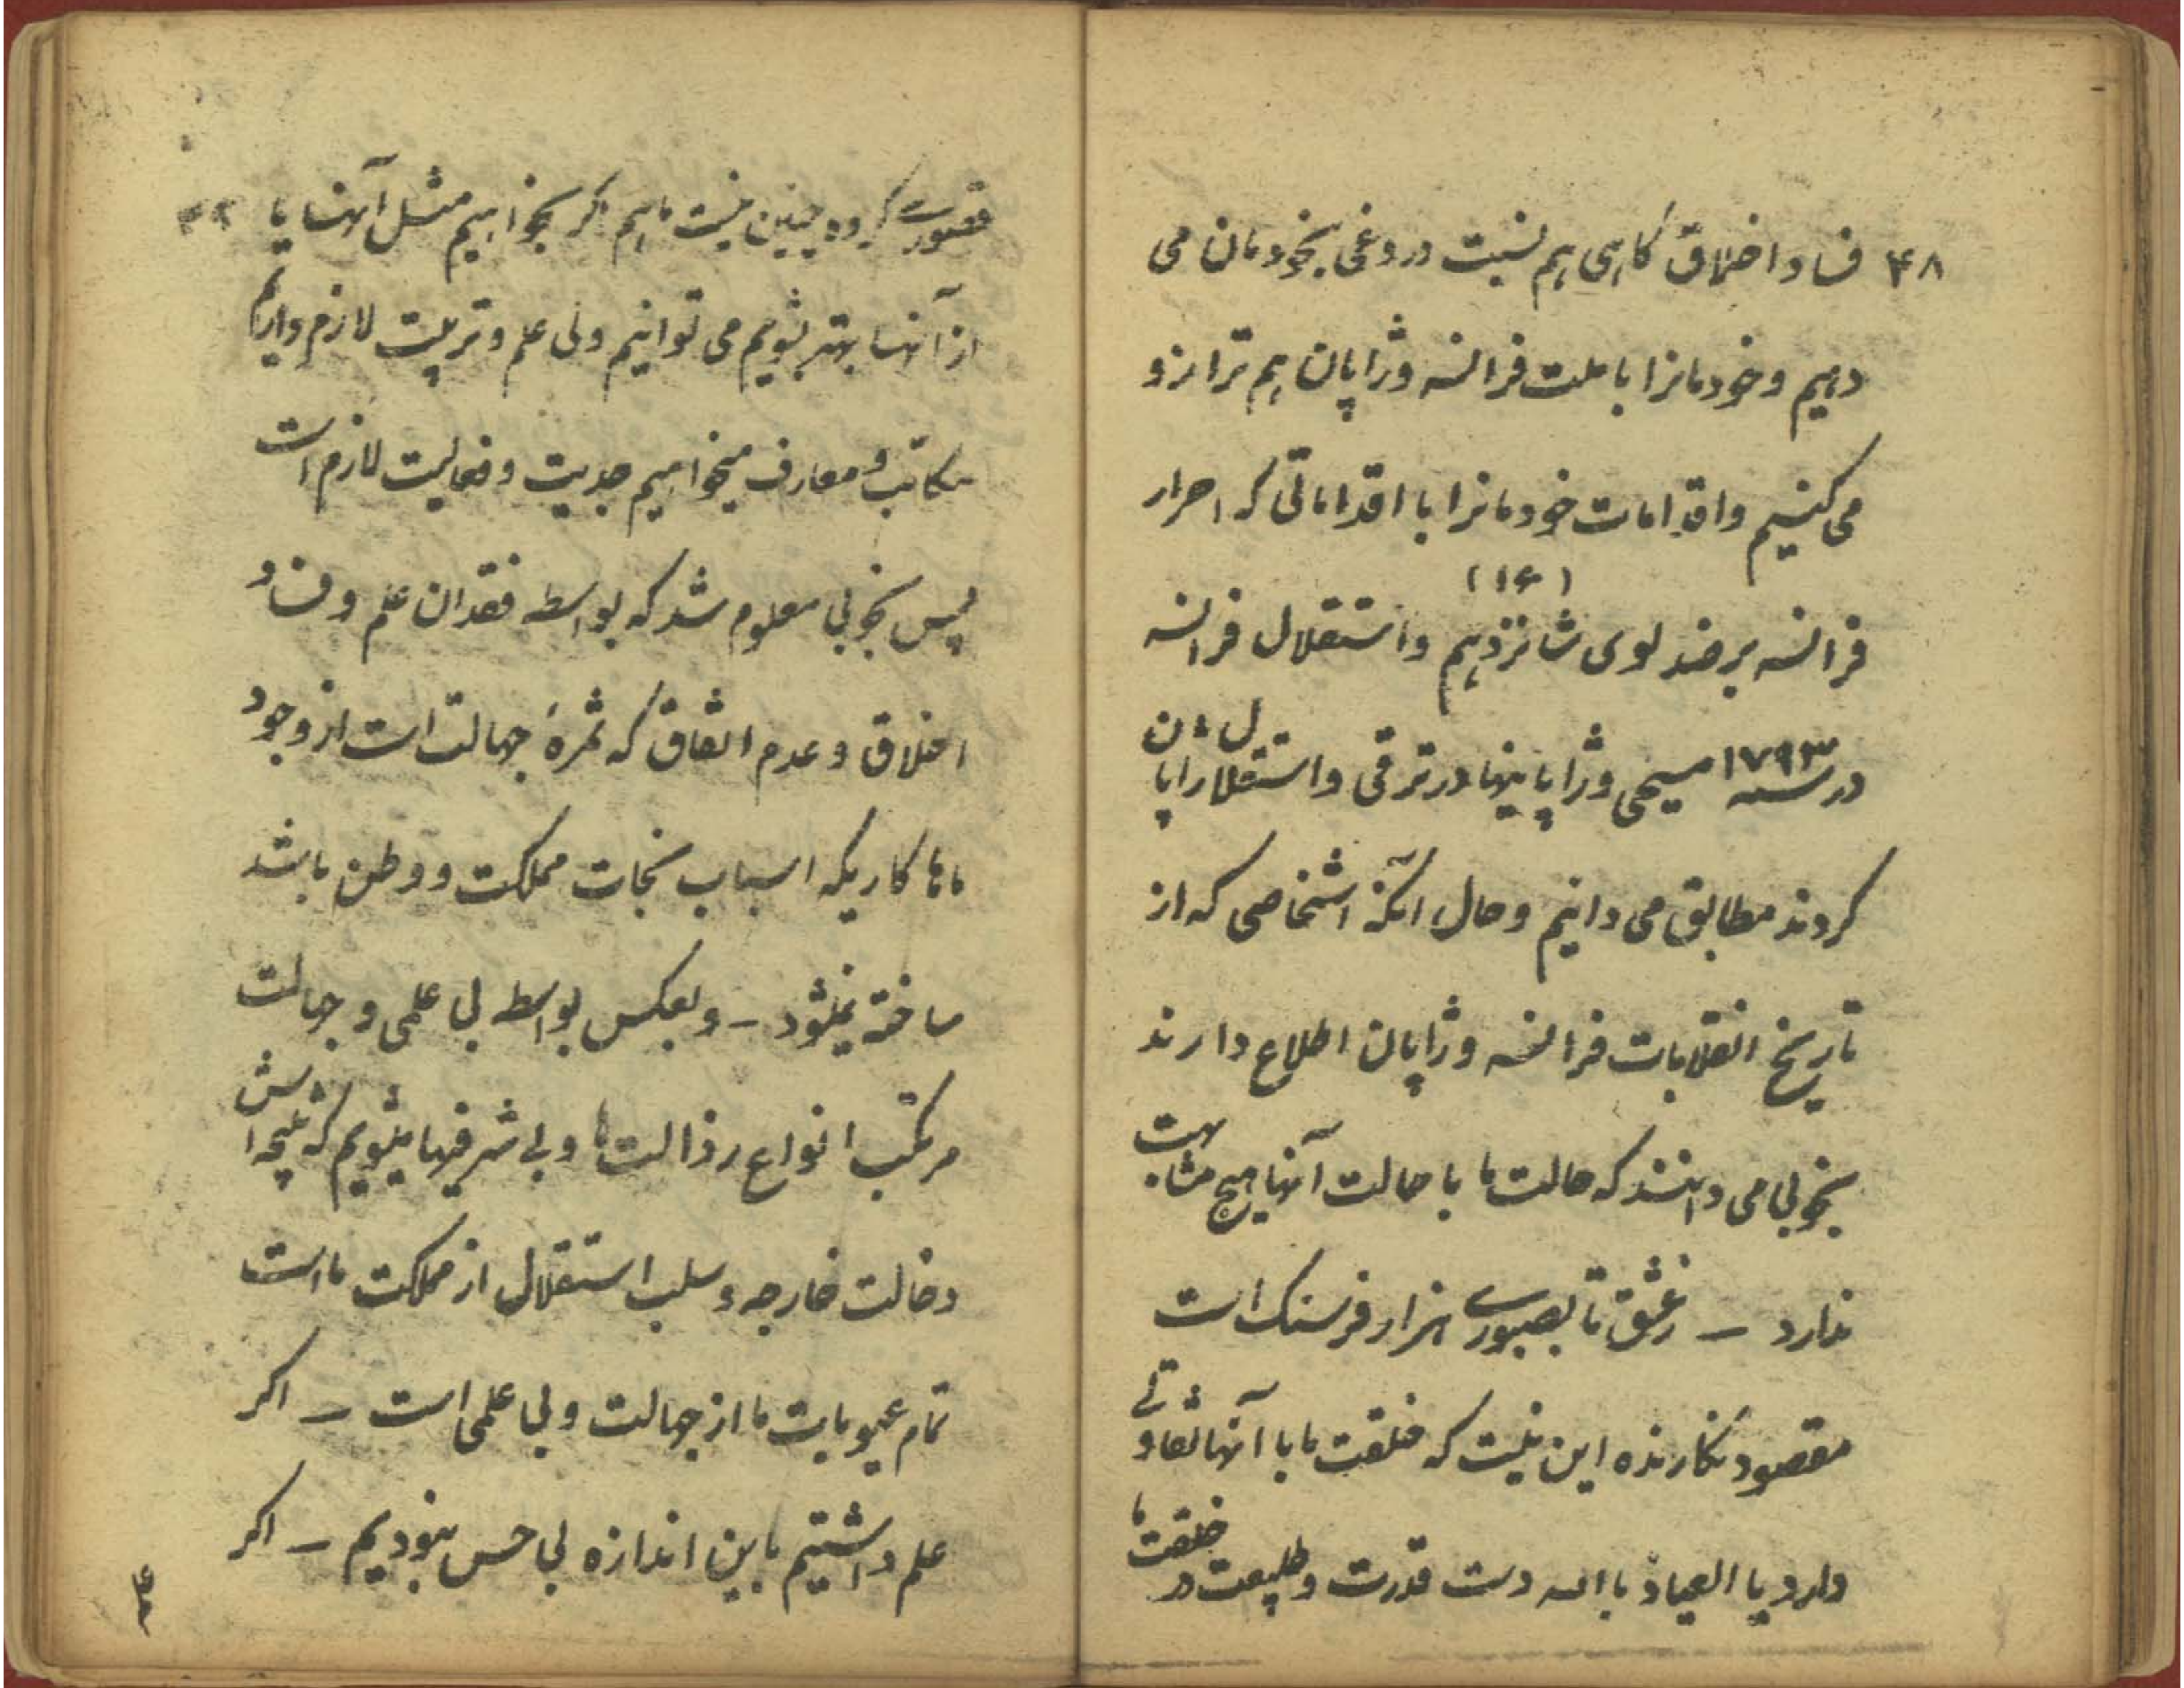 ۴۸ فساد اخلاق گاهی هم نسبت دروغی بخودمان می
دهیم و خودمانرا با ملت فرانسه و ژاپان هم ترازو
می کنیم و اقدامات خودمانرا با اقداماتی که احرار
فرانسه بر ضد لوی شانزدهم (۱۶) و استقلال فرانسه
در سنه ۱۷۹۳ مسیحی و ژاپانیها در ترقی و استقلال ژاپان
کردند مطابق می دانیم و حال آنکه اشخاصی که از
تاریخ انقلابات فرانسه و ژاپان اطلاع دارند
بخوبی می دانند که حالت ما با حالت آنها هیچ مشابهت
ندارد – ز عشق تا بصبوری هزار فرسنک است
مقصود نگارنده این نیست که خلقت ما با آنها تفاوتی
دارد یا العیاذ باالله دست قدرت و طبیعت در خلقت ما
قصوری کرده چنین نیست ما هم اکر بخواهیم مثل آنها یا
از آنها بهتر بشویم می توانیم ولی علم و تربیت لازم داریم
مکاتب و معارف میخواهیم جدیت و فعالیت لازم است
پس بخوبی معلوم شد که بواسطه فقدان علم و فساد
اخلاق و عدم اتفاق که ثمرهٔ جهالت است از وجود
ماها کاریکه اسباب نجات مملکت و وطن باشد
ساخته نمیشود – و بعکس بواسطه بی علمی و جهالت
مرتکب انواع رذالت ها و بی شرفیها میشویم که نتیجه اش
دخالت خارجه و سلب استقلال از مملکت ما است
تمام عیوبات ما از جهالت و بی علمی است – اکر
علم داشتیم باین اندازه بی حس نبودیم – اکر